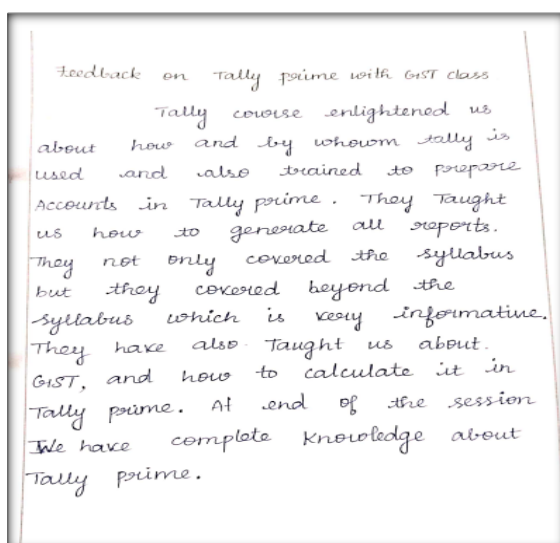 Feedback on Tally prime with GST class
Tally course enlightened us
about how and by whowm tally is
used and also trained to prepare
Accounts in Tally prime. They Taught
us how to generate all reports.
They not only covered the syllabus
but they covered beyond the
syllabus which is very informative.
They have also Taught us about.
GST, and how to calculate it in
Tally prime. At end of the session
We have complete Knowledge about
Tally prime.